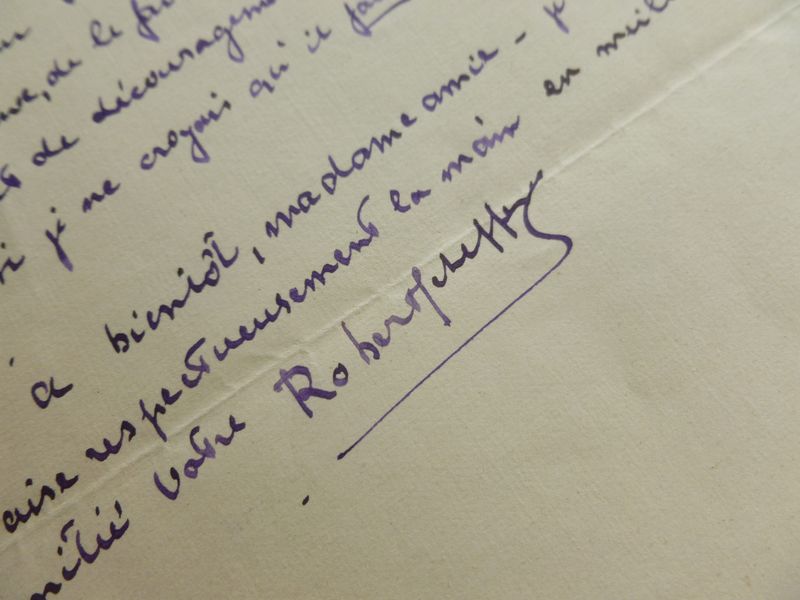 de le
de découragement
si je ne croyais qu'il
à bientôt, madame amie - je
baise respectueusement la main en
amitié votre Robert Scheffer